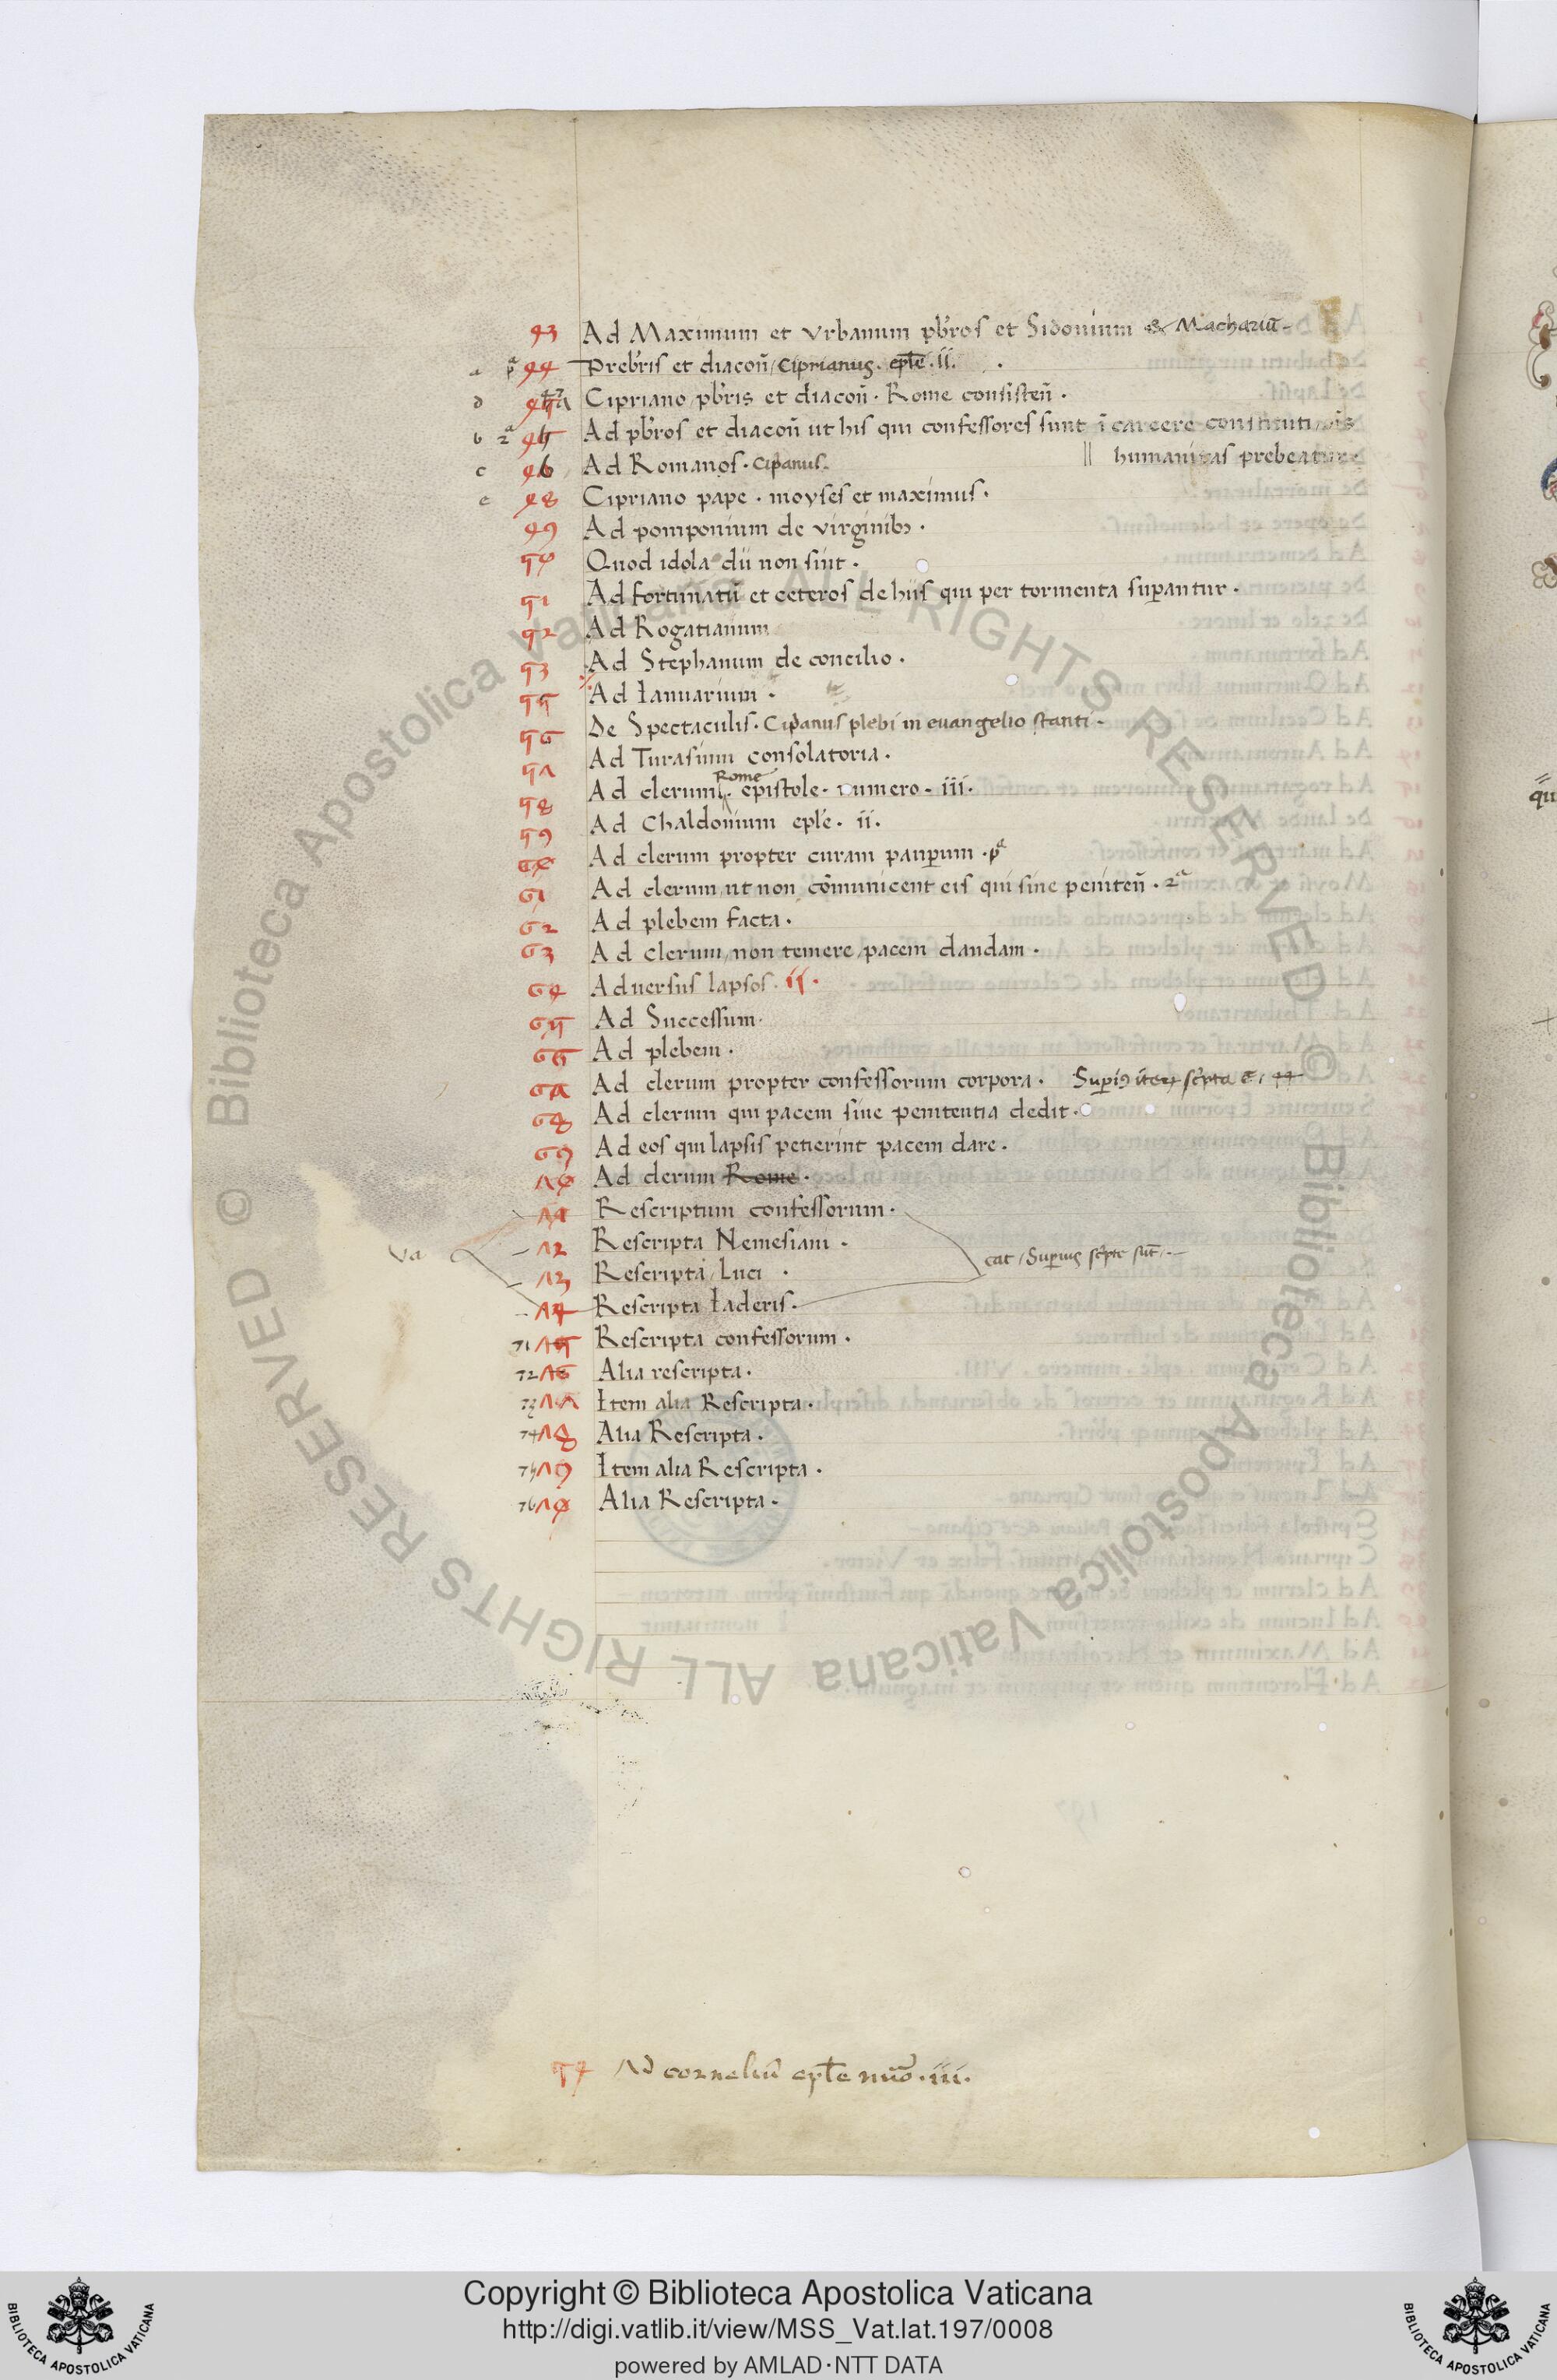 43 Ad Maximum et Vrbanum pbros et Sidonium & Machariū
a pª 44 Prebris et diacoñ / Ciprianus. eple. ii.
d 47 Cipriano pbris et diacoñ. Rome consisteñ.
b 2ª 45 Ad pbros et diacoñ ut his qui confessores sunt ī carcere constituti, ois
|| humanitas prebeatur.
c 46 Ad Romanos. Cipanus.
e 48 Cipriano pape. moyses et maximus.
49 Ad pomponium de virginibꝫ.
50 Quod idola dii non sint.
51 Ad fortunatū et ceteros de hiis qui per tormenta supantur.
52 Ad Rogatianum
53 Ad Stephanum de concilio.
55 Ad Ianuarium.
56 De Spectaculis. Cipanus plebi in euangelio stanti.
57 Ad Turasium consolatoria.
Rome
58 Ad clerum. epistole. numero. iii.
59 Ad Chaldonium eple. ii.
60 Ad clerum propter curam pauperum. pª
61 Ad clerum ut non cōmunicent eis qui sine peniteñ. 2ª
62 Ad plebem facta.
63 Ad clerum, non temere pacem dandam.
64 Aduersus lapsos. ii.
65 Ad Successum.
66 Ad plebem.
67 Ad clerum propter confessorum corpora. Supiꝰ scpta ē, 44
68 Ad clerum qui pacem sine penitentia dedit.
69 Ad eos qui lapsis petierint pacem dare.
70 Ad clerum Rome.
71 Rescriptum confessorum.
72 Rescripta Nemesiani.
va cat / Superius scpte sūt.
73 Rescripta Luci.
74 Rescripta Iaderis.
71 75 Rescripta confessorum.
72 76 Alia rescripta.
73 77 Item alia Rescripta.
74 78 Alia Rescripta.
75 79 Item alia Rescripta.
76 70 Alia Rescripta.
54 Ad corneliū eple nuo. iii.
© Biblioteca Apostolica Vaticana ALL RIGHTS RESERVED © Biblioteca Apostolica Vaticana ALL RIGHTS RESERVED
Copyright © Biblioteca Apostolica Vaticana
http://digi.vatlib.it/view/MSS_Vat.lat.197/0008
powered by AMLAD·NTT DATA
BIBLIOTECA APOSTOLICA VATICANA
BIBLIOTECA APOSTOLICA VATICANA